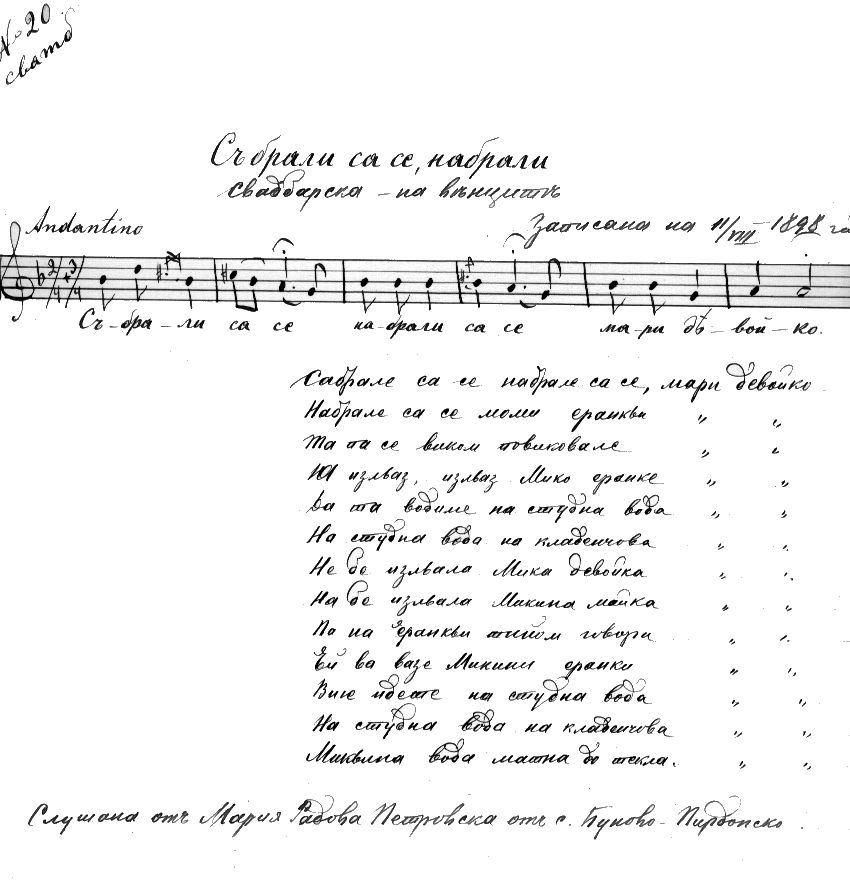 № 20
сватб
Събрали са се, набрали
свадбарска – на вѣнцитѣ
Andantino
Записана на 11/VIII – 1898 го
2/4 + 3/4
Съ–бра–ли са се на–брали са се ма–ри дѣ–вой–ко.
Сабрале са се набрале са се, мари девойко
Набрале са се моми еранкьи „ „
Та па се виком повиковале „ „
излваз, излваз Мико еранке „ „
Да та водиме на студна вода „ „
На студна вода на кладенчова „ „
Не бе излвала Мика девойка „ „
На бе излвала Микина майка „ „
Па на еранкьи тийом говори „ „
Ей ва вазе Микини еранки „ „
Вие идете на студна вода „ „
На студна вода на кладенчова „ „
вода матна до текла. „ „
Слушана отъ Мария Радова Петровска отъ с. Буново – Пирдопско.